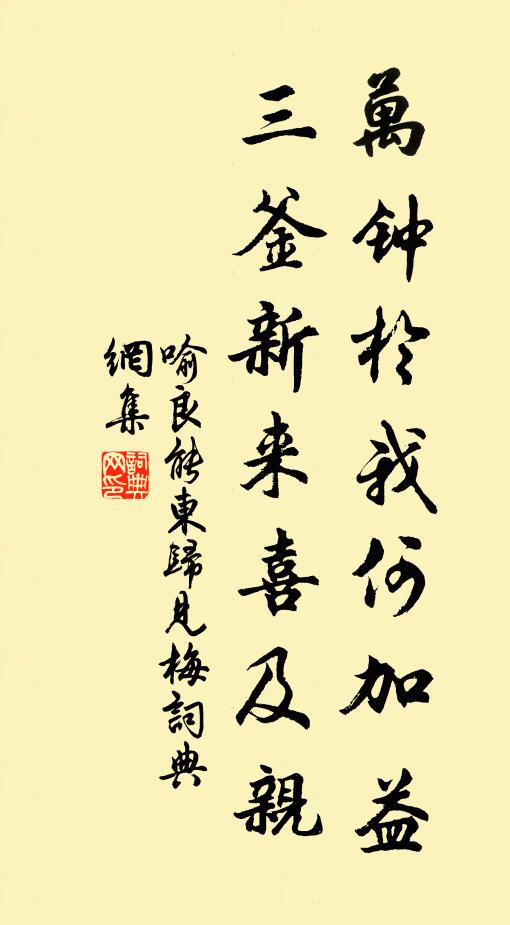 萬钟於我何加益
三釜新来喜及親
喻良能東歸見梅詞典
網集
詞典网印